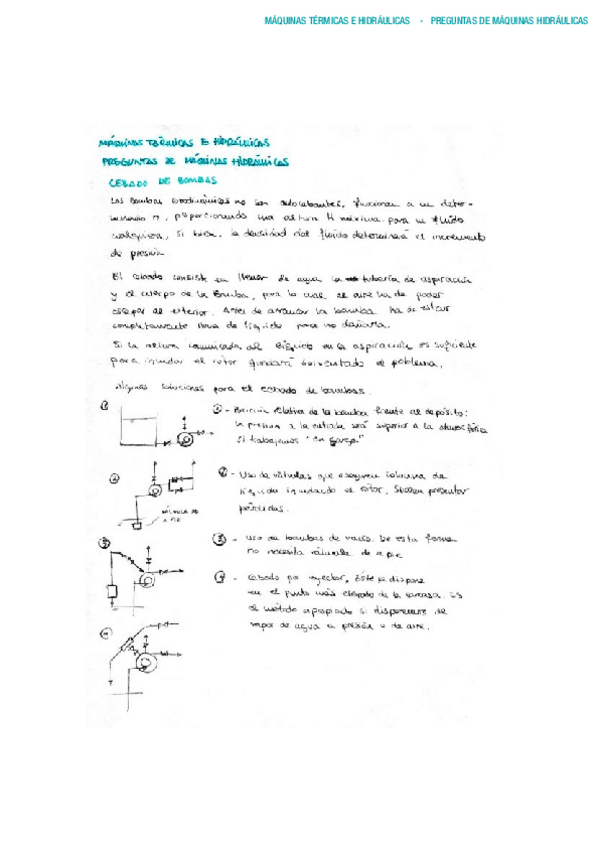 MÁQUINAS TÉRMICAS E HIDRÁULICAS - PREGUNTAS DE MÁQUINAS HIDRÁULICAS
MÁQUINAS TÉRMICAS E HIDRÁULICAS
PREGUNTAS DE MÁQUINAS HIDRÁULICAS
CEBADO DE BOMBAS
Las bombas rotodinámicas no son autocebantes, funcionan a un deter-
minado n, proporcionando una altura H máxima para un fluido
cualquiera, si bien, la densidad del fluido determinará el incremento
de presión
El cebado consiste en llenar de agua la tubería de aspiración
y el cuerpo de la bomba, para lo cual el aire ha de poder
escapar al exterior. Antes de arrancar la bomba ha de estar
completamente llena de líquido para no dañarla.
Si la altura comunicada del líquido en la aspiración es suficiente
para inundar el rotor quedará solventado el problema.
Algunas soluciones para el cebado de bombas.
1
1 - Posición relativa de la bomba frente al depósito:
la presión a la entrada será superior a la atmosférica
si trabajamos "en carga"
2
2 - Uso de válvulas que aseguren columna de
líquido inundando el rotor. Suelen presentar
pérdidas.
VÁLVULA DE
A PIE
3
3 - Uso de bombas de vacío. De esta forma
no necesita válvula de a pie
4 - Cebado por eyector, éste se dispone
en el punto más elevado de la carcasa. Es
el método apropiado si disponemos de
vapor de agua a presión o de aire.
4